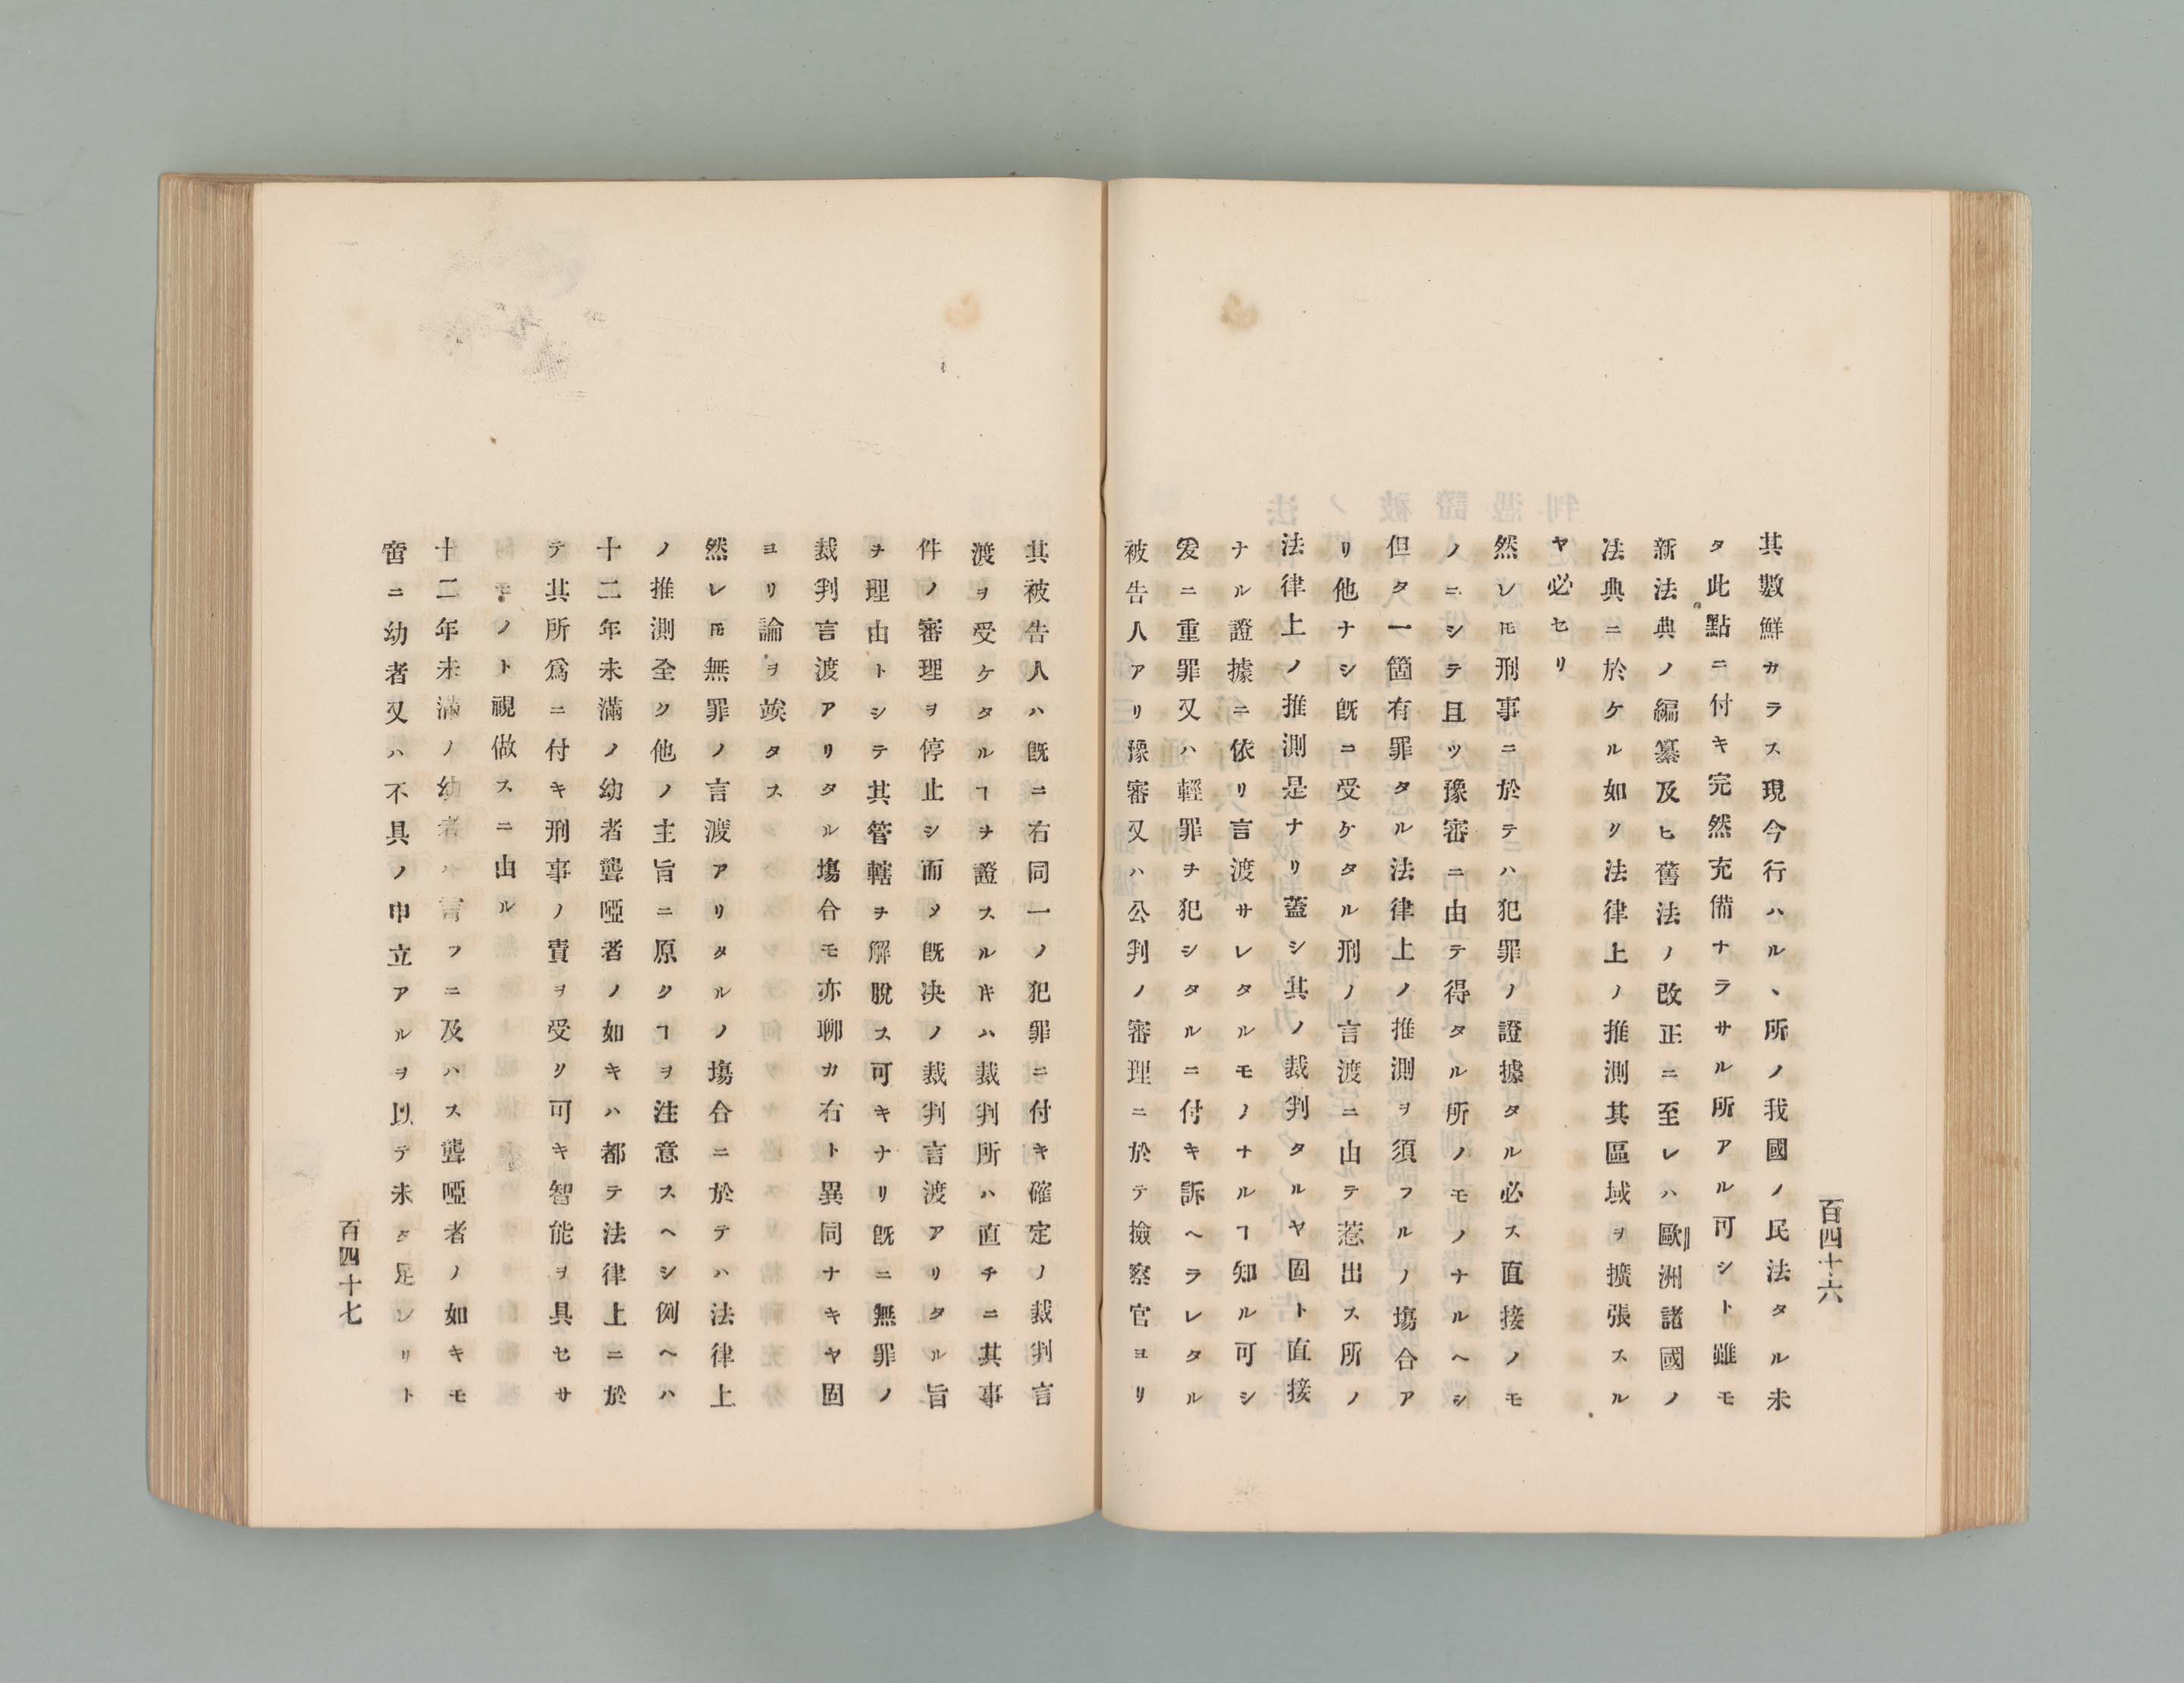 百四十六
其數鮮カラス現今行ハル、所ノ我國ノ民法タル未
タ此點ニ付キ完然充備ナラサル所アル可シト雖モ
新法典ノ編纂及ヒ舊法ノ改正ニ至レハ歐洲諸國ノ
法典ニ於ケル如ク法律上ノ推測其區域ヲ擴張スル
ヤ必セリ
然レ𪜈刑事ニ於テハ犯罪ノ證據タル必ス直接ノモ
ノニシテ且ツ豫審ニ由テ得タル所ノモノナルヘシ
但タ一箇有罪タル法律上ノ推測ヲ須フルノ塲合ア
リ他ナシ既ニ受ケタル刑ノ言渡ニ由テ惹出ス所ノ
法律上ノ推測是ナリ蓋シ其ノ裁判タルヤ固ト直接
ナル證據ニ依リ言渡サレタルモノナルヿ知ル可シ
爰ニ重罪又ハ輕罪ヲ犯シタルニ付キ訴ヘラレタル
被告人アリ豫審又ハ公判ノ審理ニ於テ撿察官ヨリ
其被告人ハ既ニ右同一ノ犯罪ニ付キ確定ノ裁判言
渡ヲ受ケタルヿヲ證スルキハ裁判所ハ直チニ其事
件ノ審理ヲ停止シ而メ既决ノ裁判言渡アリタル旨
ヲ理由トシテ其管轄ヲ解脫ス可キナリ既ニ無罪ノ
裁判言渡アリタル塲合モ亦聊カ右ト異同ナキヤ固
ヨリ論ヲ竢タス
然レ𪜈無罪ノ言渡アリタルノ塲合ニ於テハ法律上
ノ推測全ク他ノ主旨ニ原クヿヲ注意スヘシ例ヘハ
十二年未滿ノ幼者聾啞者ノ如キハ都テ法律上ニ於
テ其所爲ニ付キ刑事ノ責ヲ受ク可キ智能ヲ具セサ
モノト視做スニ由ル
十二年未滿ノ幼者ハ言フニ及ハス聾啞者ノ如キモ
啻ニ幼者又ハ不具ノ申立アルヲ以テ未タ足レリト
百四十七